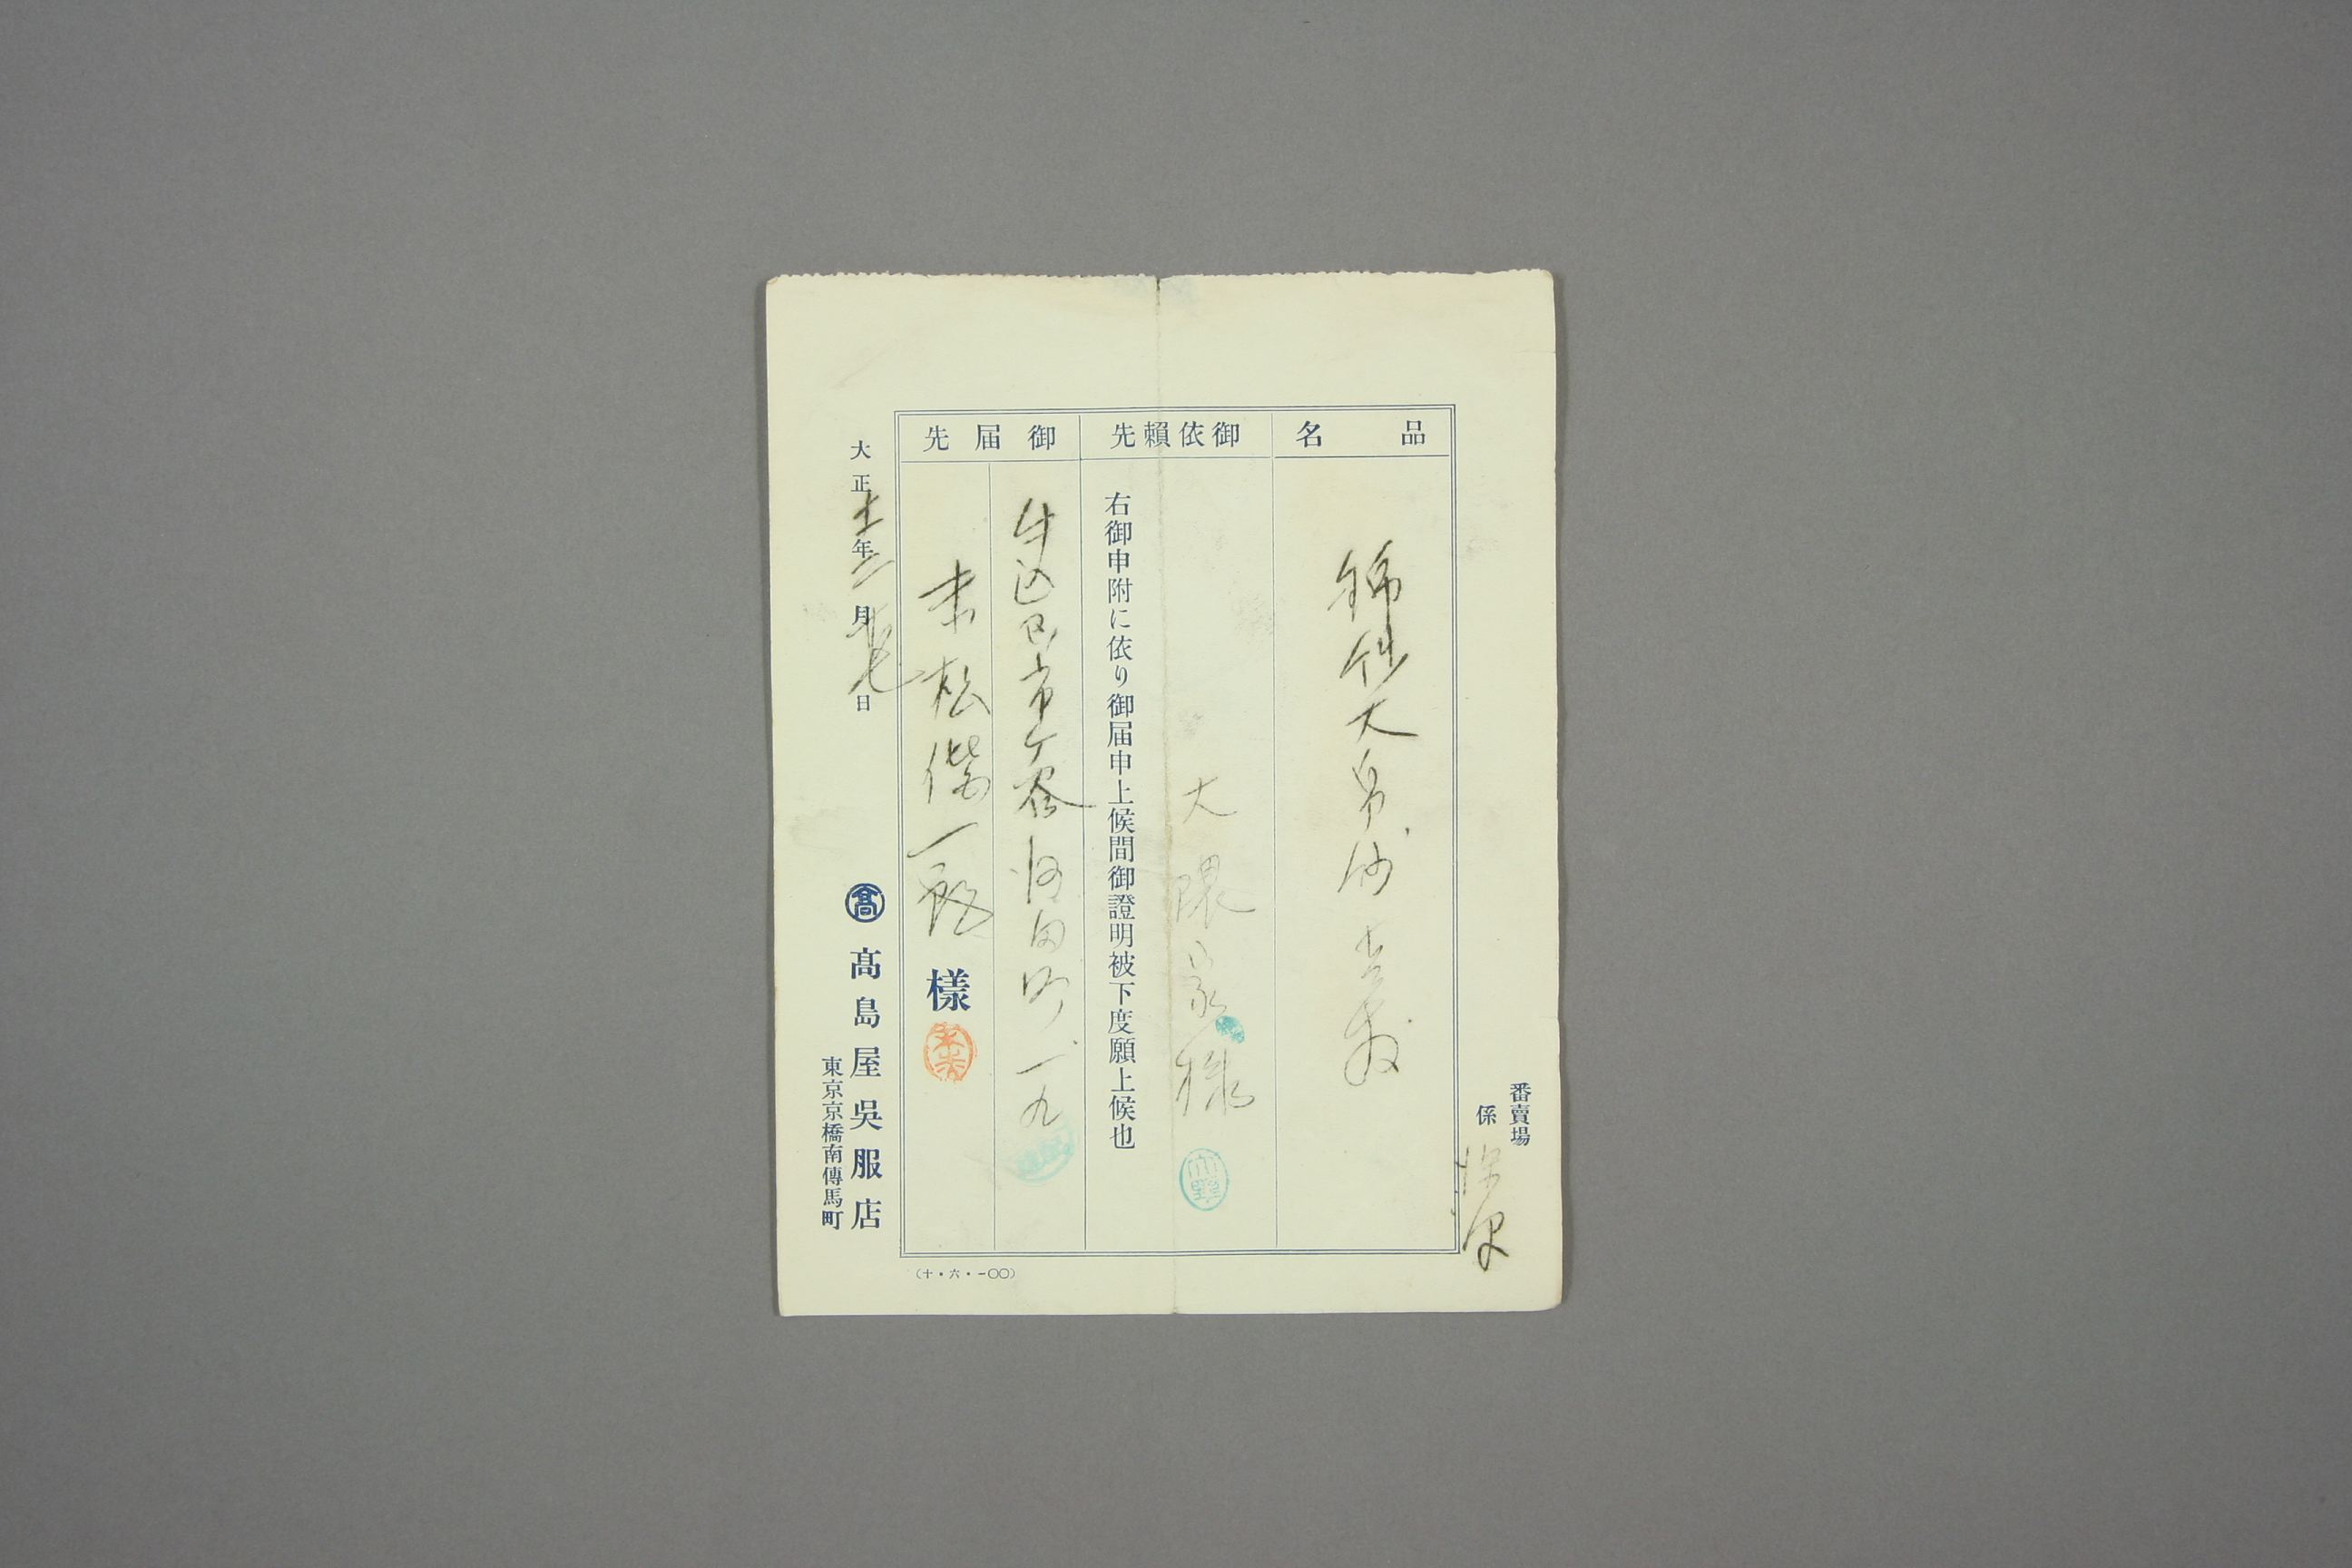 番賣場
係
品名
大帛紗 壱
御依頼先
大隈家様
右御申附に依り御届申上候間御證明被下度願上候也
御届先
牛込区市ケ谷 町一九
末松偕一郎様
大正十一年二月十七日
髙
髙島屋吳服店
東京京橋南傳馬町
(十・六・一〇〇)